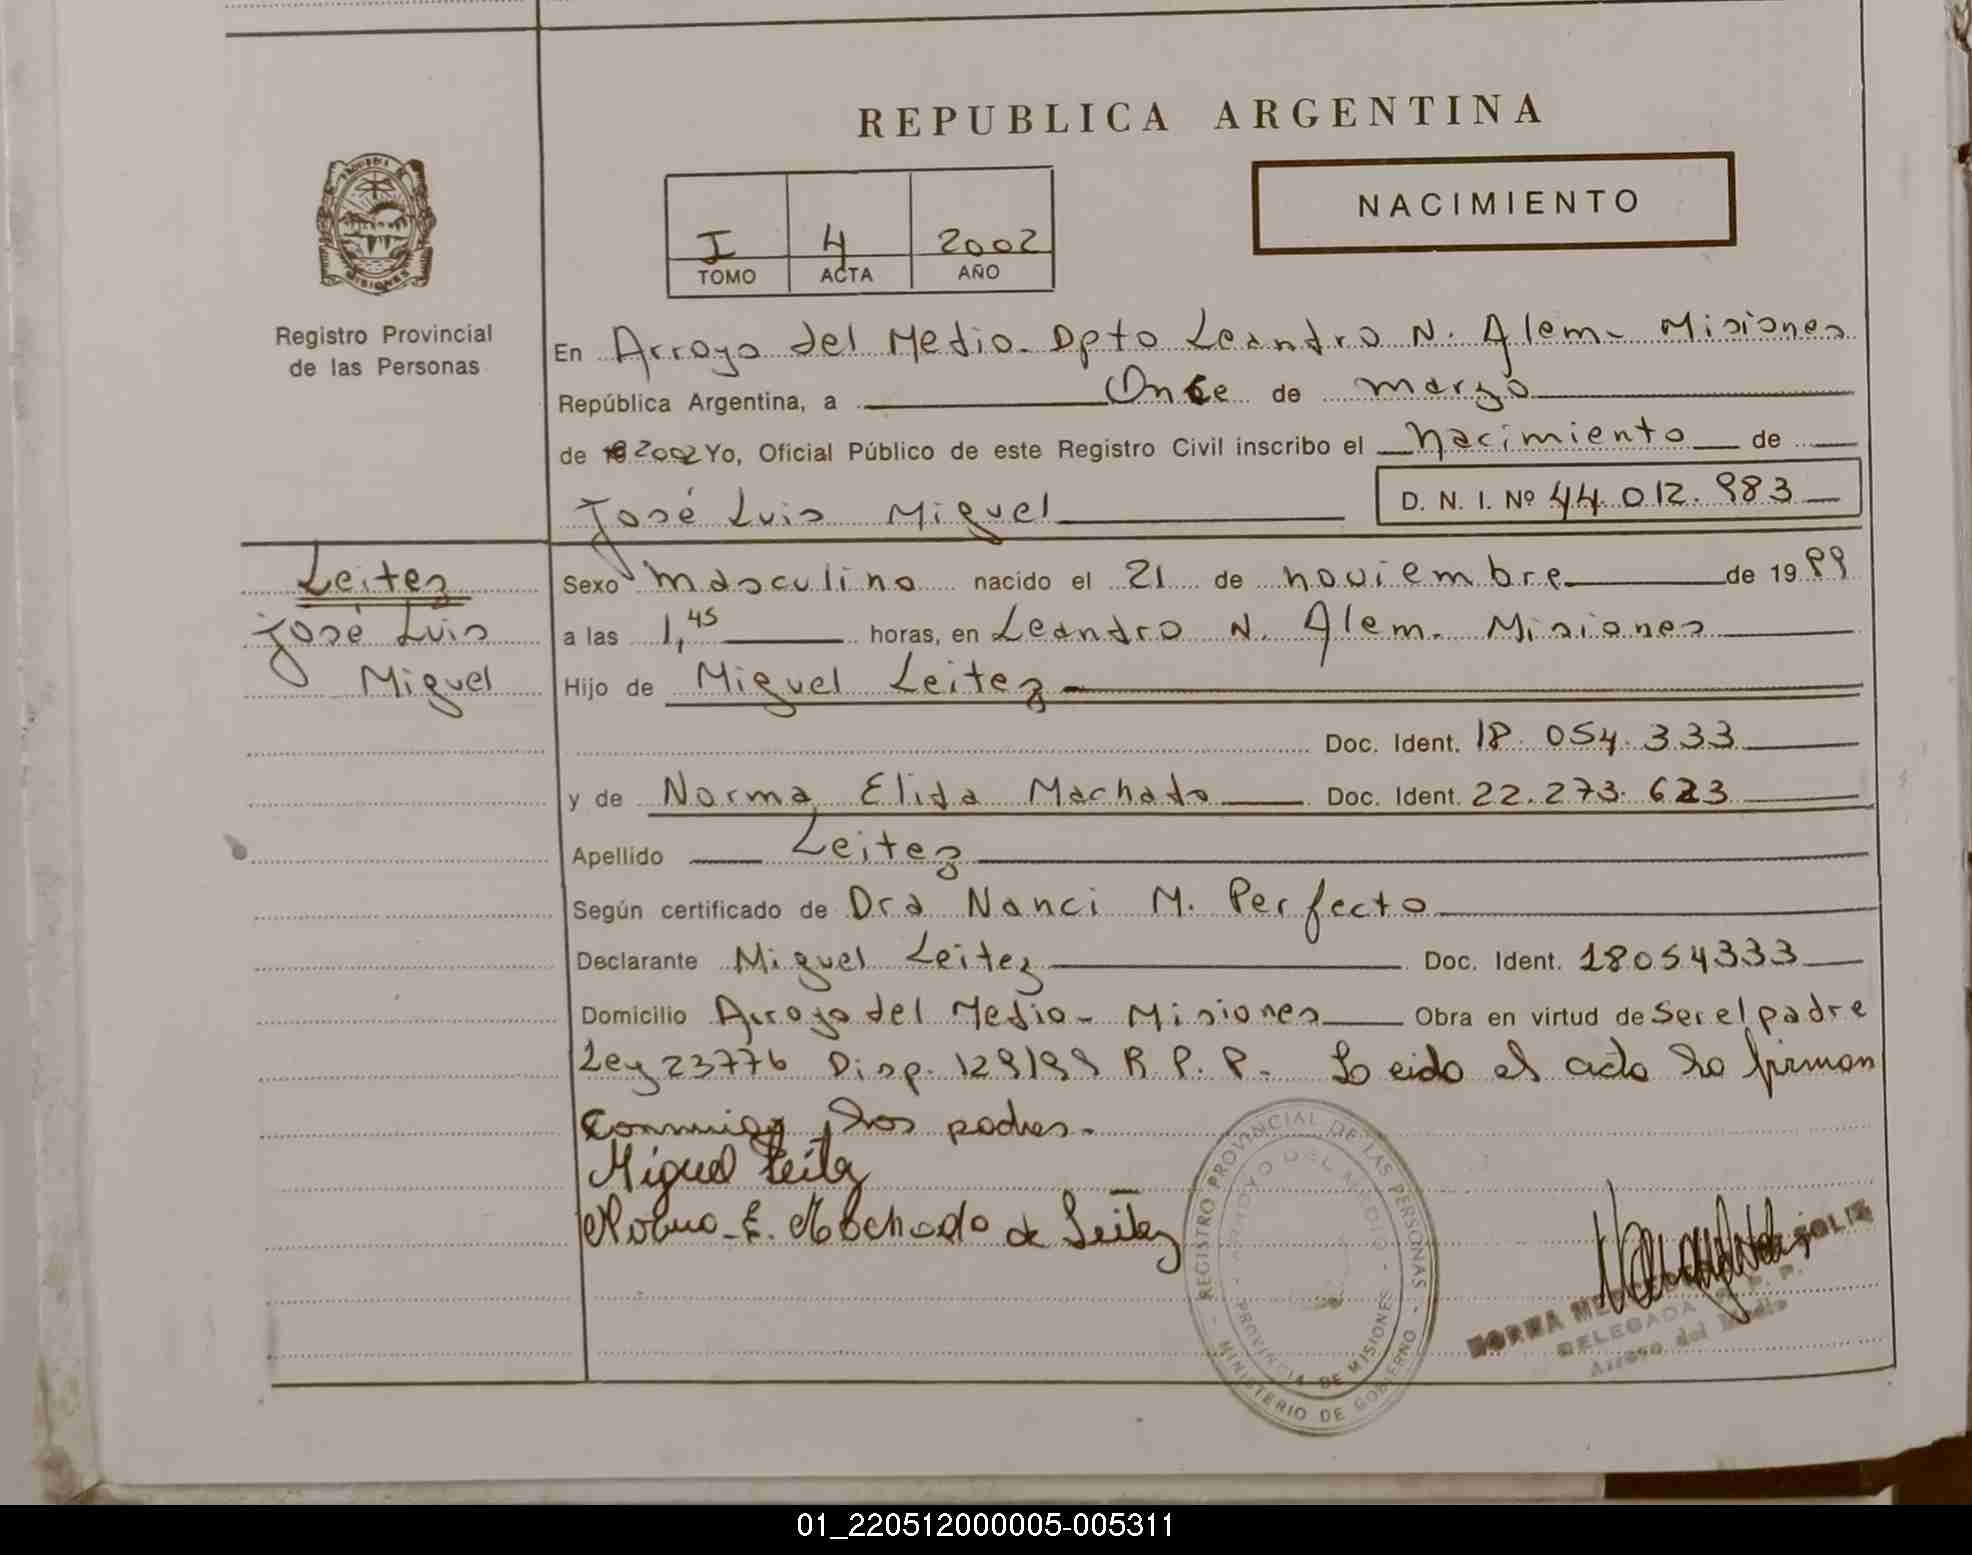 REPUBLICA ARGENTINA
NACIMIENTO
I 4 2002
TOMO ACTA AÑO
Registro Provincial
de las Personas
En Arroyo del Medio - Dpto Leandro N. Alem - Misiones
República Argentina, a Once de marzo
de 2002 Yo, Oficial Público de este Registro Civil inscribo el nacimiento de
José Luis Miguel D. N. I. Nº 44.012.983
Leitez
José Luis
Miguel
Sexo masculino nacido el 21 de noviembre de 1999
a las 1,45 horas, en Leandro N. Alem - Misiones
Hijo de Miguel Leitez
Doc. Ident. 18.054.333
y de Norma Elida Machado Doc. Ident. 22.273.623
Apellido Leitez
Según certificado de Dra Nanci M. Perfecto
Declarante Miguel Leitez Doc. Ident. 18054333
Domicilio Arroyo del Medio - Misiones Obra en virtud de ser el padre
Ley 23776 Disp. 129/99 R.P.P. - Leido el acta lo firman
conmigo los padres.
Miguel Leitez
Norma E. Machado de Leitez
REGISTRO PROVINCIAL DE LAS PERSONAS
ARROYO DEL MEDIO
PROVINCIA DE MISIONES
MINISTERIO DE GOBIERNO
NORMA SOLIS
DELEGADA R. P. P.
Arroyo del Medio
01_220512000005-005311